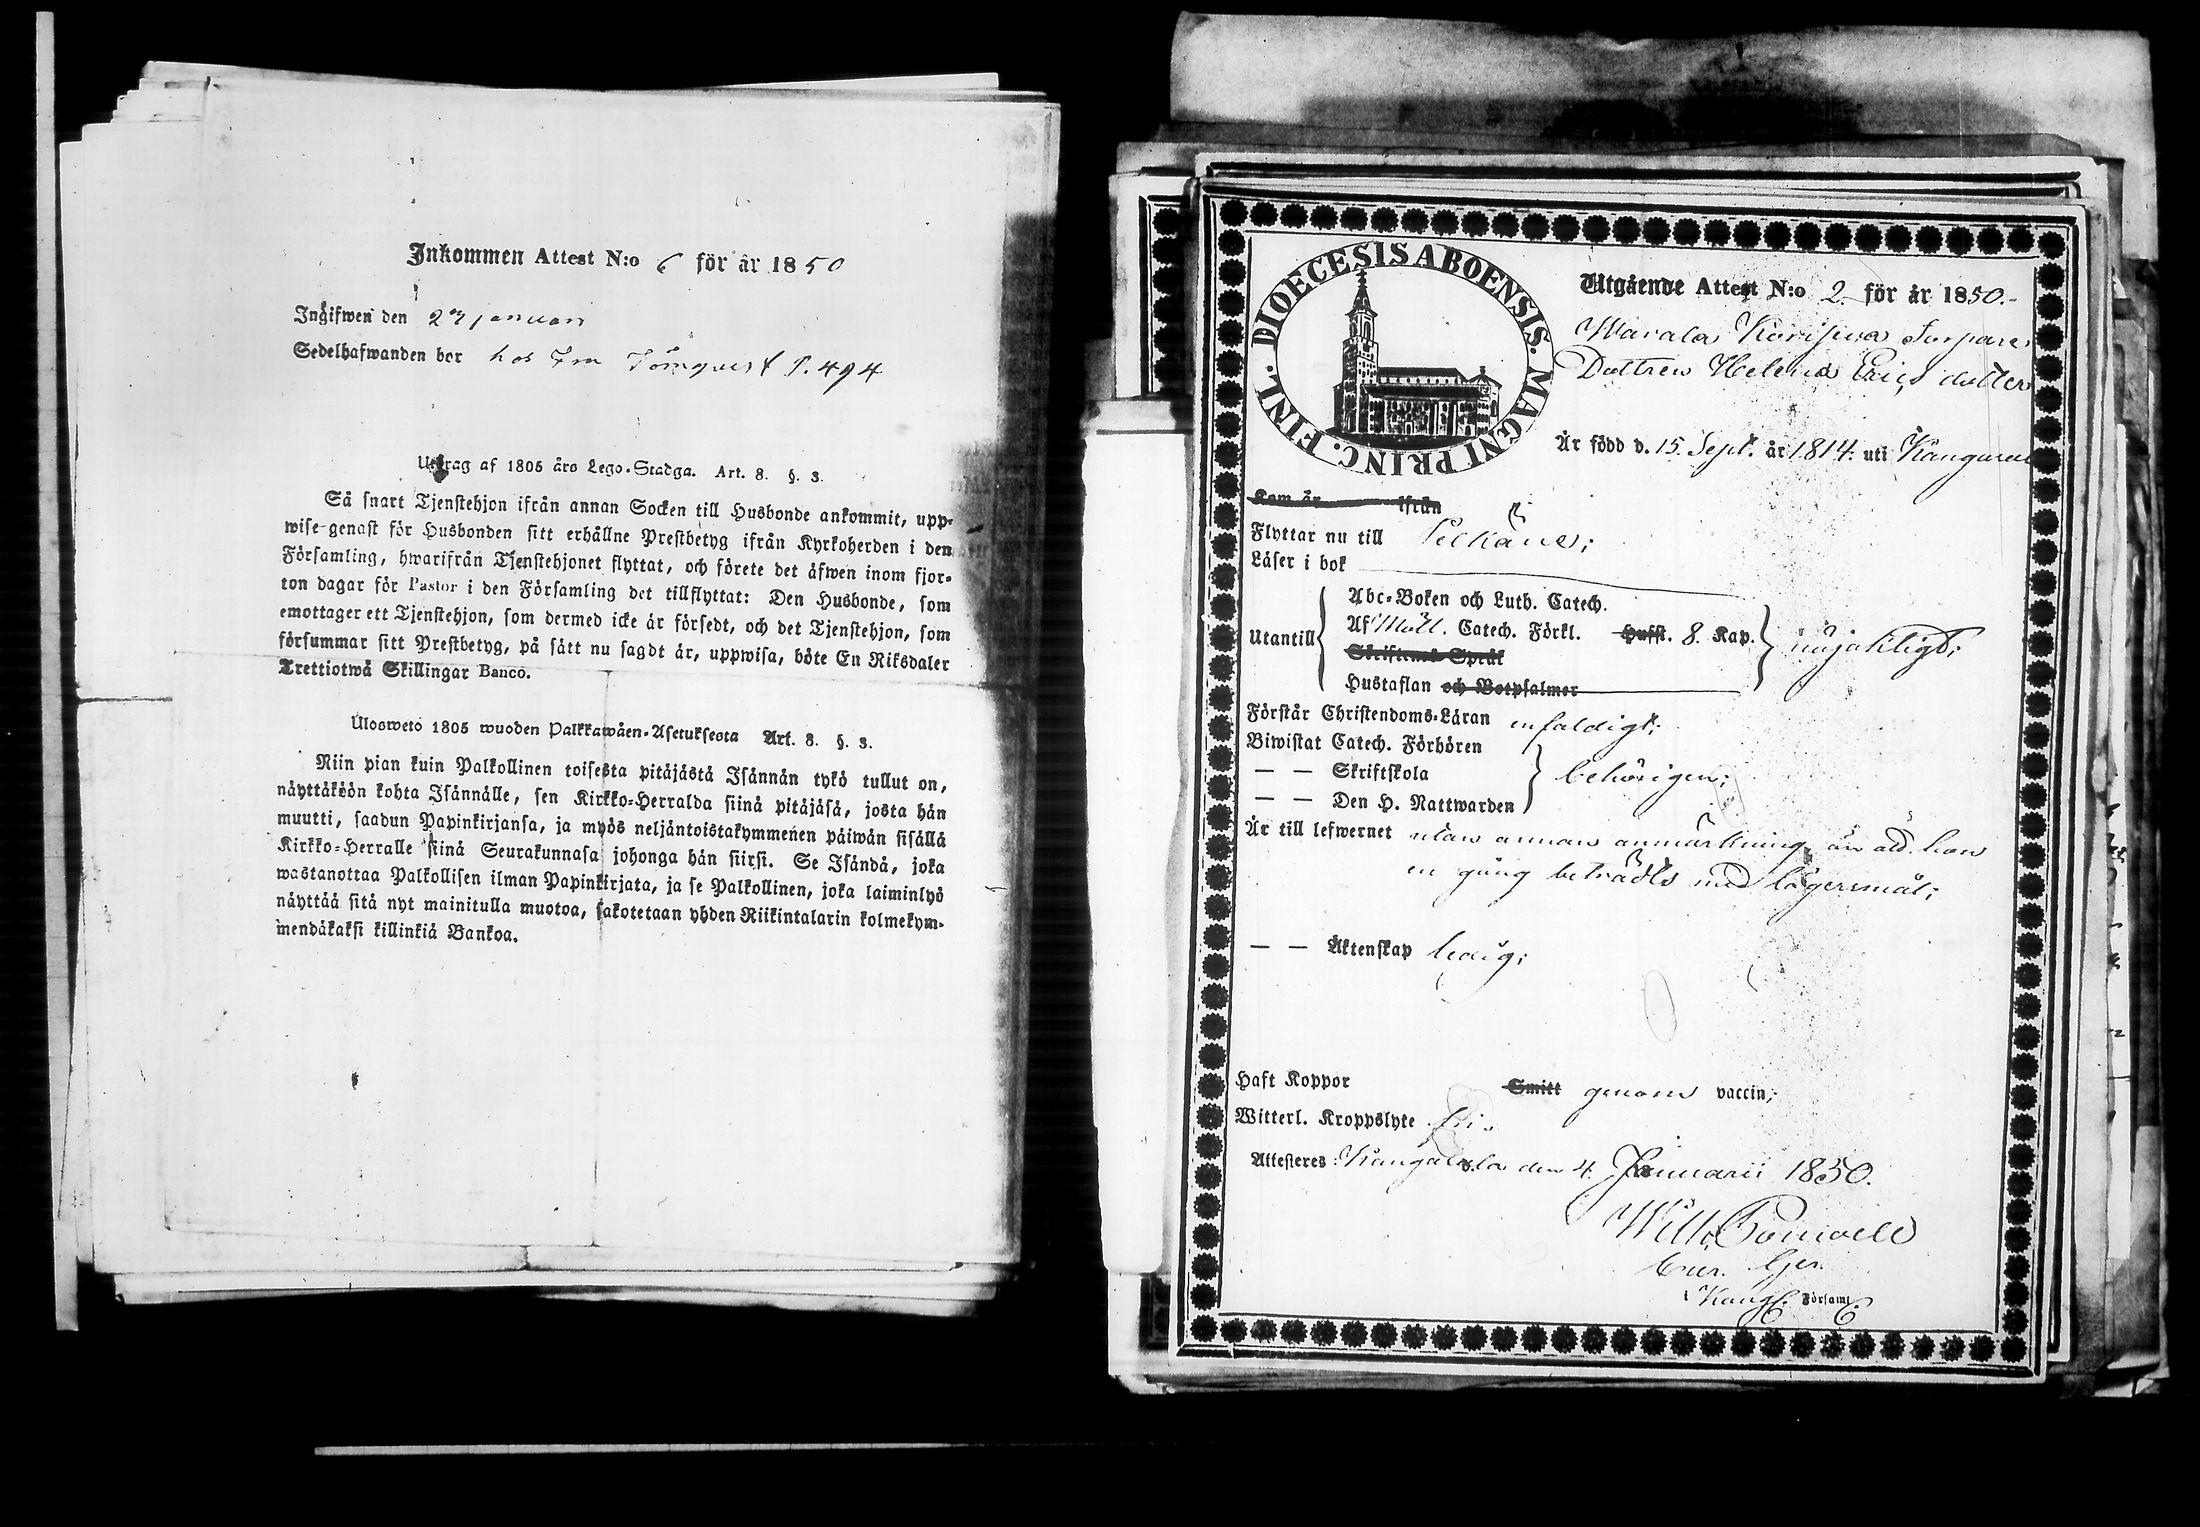 Inkommen Attest N:o 6 för år 1850
Ingifwen den 27 januari
Sedelhafwanden bor hos P. 494
Utdrag af 1805 års Lego-Stadga. Art. 8. §. 3.
Så snart Tjenstehjon ifrån annan Socken till Husbonde ankommit, upp-
wise genast för Husbonden sitt erhållne Prestbetyg ifrån Kyrkoherden i den
Församling, hwarifrån Tjenstehjonet flyttat, och förete det äfwen inom fjor-
ton dagar för Pastor i den Församling det tillflyttat: Den Husbonde, som
emottager ett Tjenstehjon, som dermed icke är försedt, och det Tjenstehjon, som
försummar sitt Prestbetyg, på sätt nu sagdt är, uppwisa, böte En Riksdaler
Trettiotwå Skillingar Banco.
Ulosweto 1805 wuoden Palkkawäen-Asetuksesta Art. 8. §. 3.
Niin pian kuin Palkollinen toisesta pitäjästä Isännän tykö tullut on,
näyttäköön kohta Isännälle, sen Kirkko-Herralda siinä pitäjäsä, josta hän
muutti, saadun Papinkirjansa, ja myös neljäntoistakymmenen päiwän sisällä
Kirkko-Herralle siinä Seurakunnasa johonga hän siirsi. Se Isändä, joka
wastanottaa Palkollisen ilman Papinkirjata, ja se Palkollinen, joka laiminlyö
näyttää sitä nyt mainitulla muotoa, sakotetaan yhden Riikintalarin kolmekym-
mendäkaksi killinkiä Bankoa.
DIOECESIS ABOENSIS. MAGNI PRINC. FINL.
Utgående Attest N:o 2 för år 1850.-
Dottren Helena Erics dotter
Är född d. 15. Sept. år 1814. uti
Kom år ifrån
Flyttar nu till Pelkäne;
Läser i bok
Utantill
Abc-Boken och Luth. Catech.
Af Möll. Catech. Förkl. Hufst. 8. Kap.
Skriftenes Språk
Hustaflan och Botpsalmer
nöjaktigt;
Förstår Christendoms-Läran enfaldigt;
Biwistat Catech. Förhören
— — Skriftskola
— — Den H. Nattwarden
behörigen;
Är till lefwernet utan annan anmärkning, än att hon
en gång beträdts med lägersmål;
— — Äktenskap ledig;
Haft Koppor Smitt genom vaccin;
Witterl. Kroppslyte fri.
Attesteres: Kangasala den 4. Januarii 1850.
Kangl. Församl.